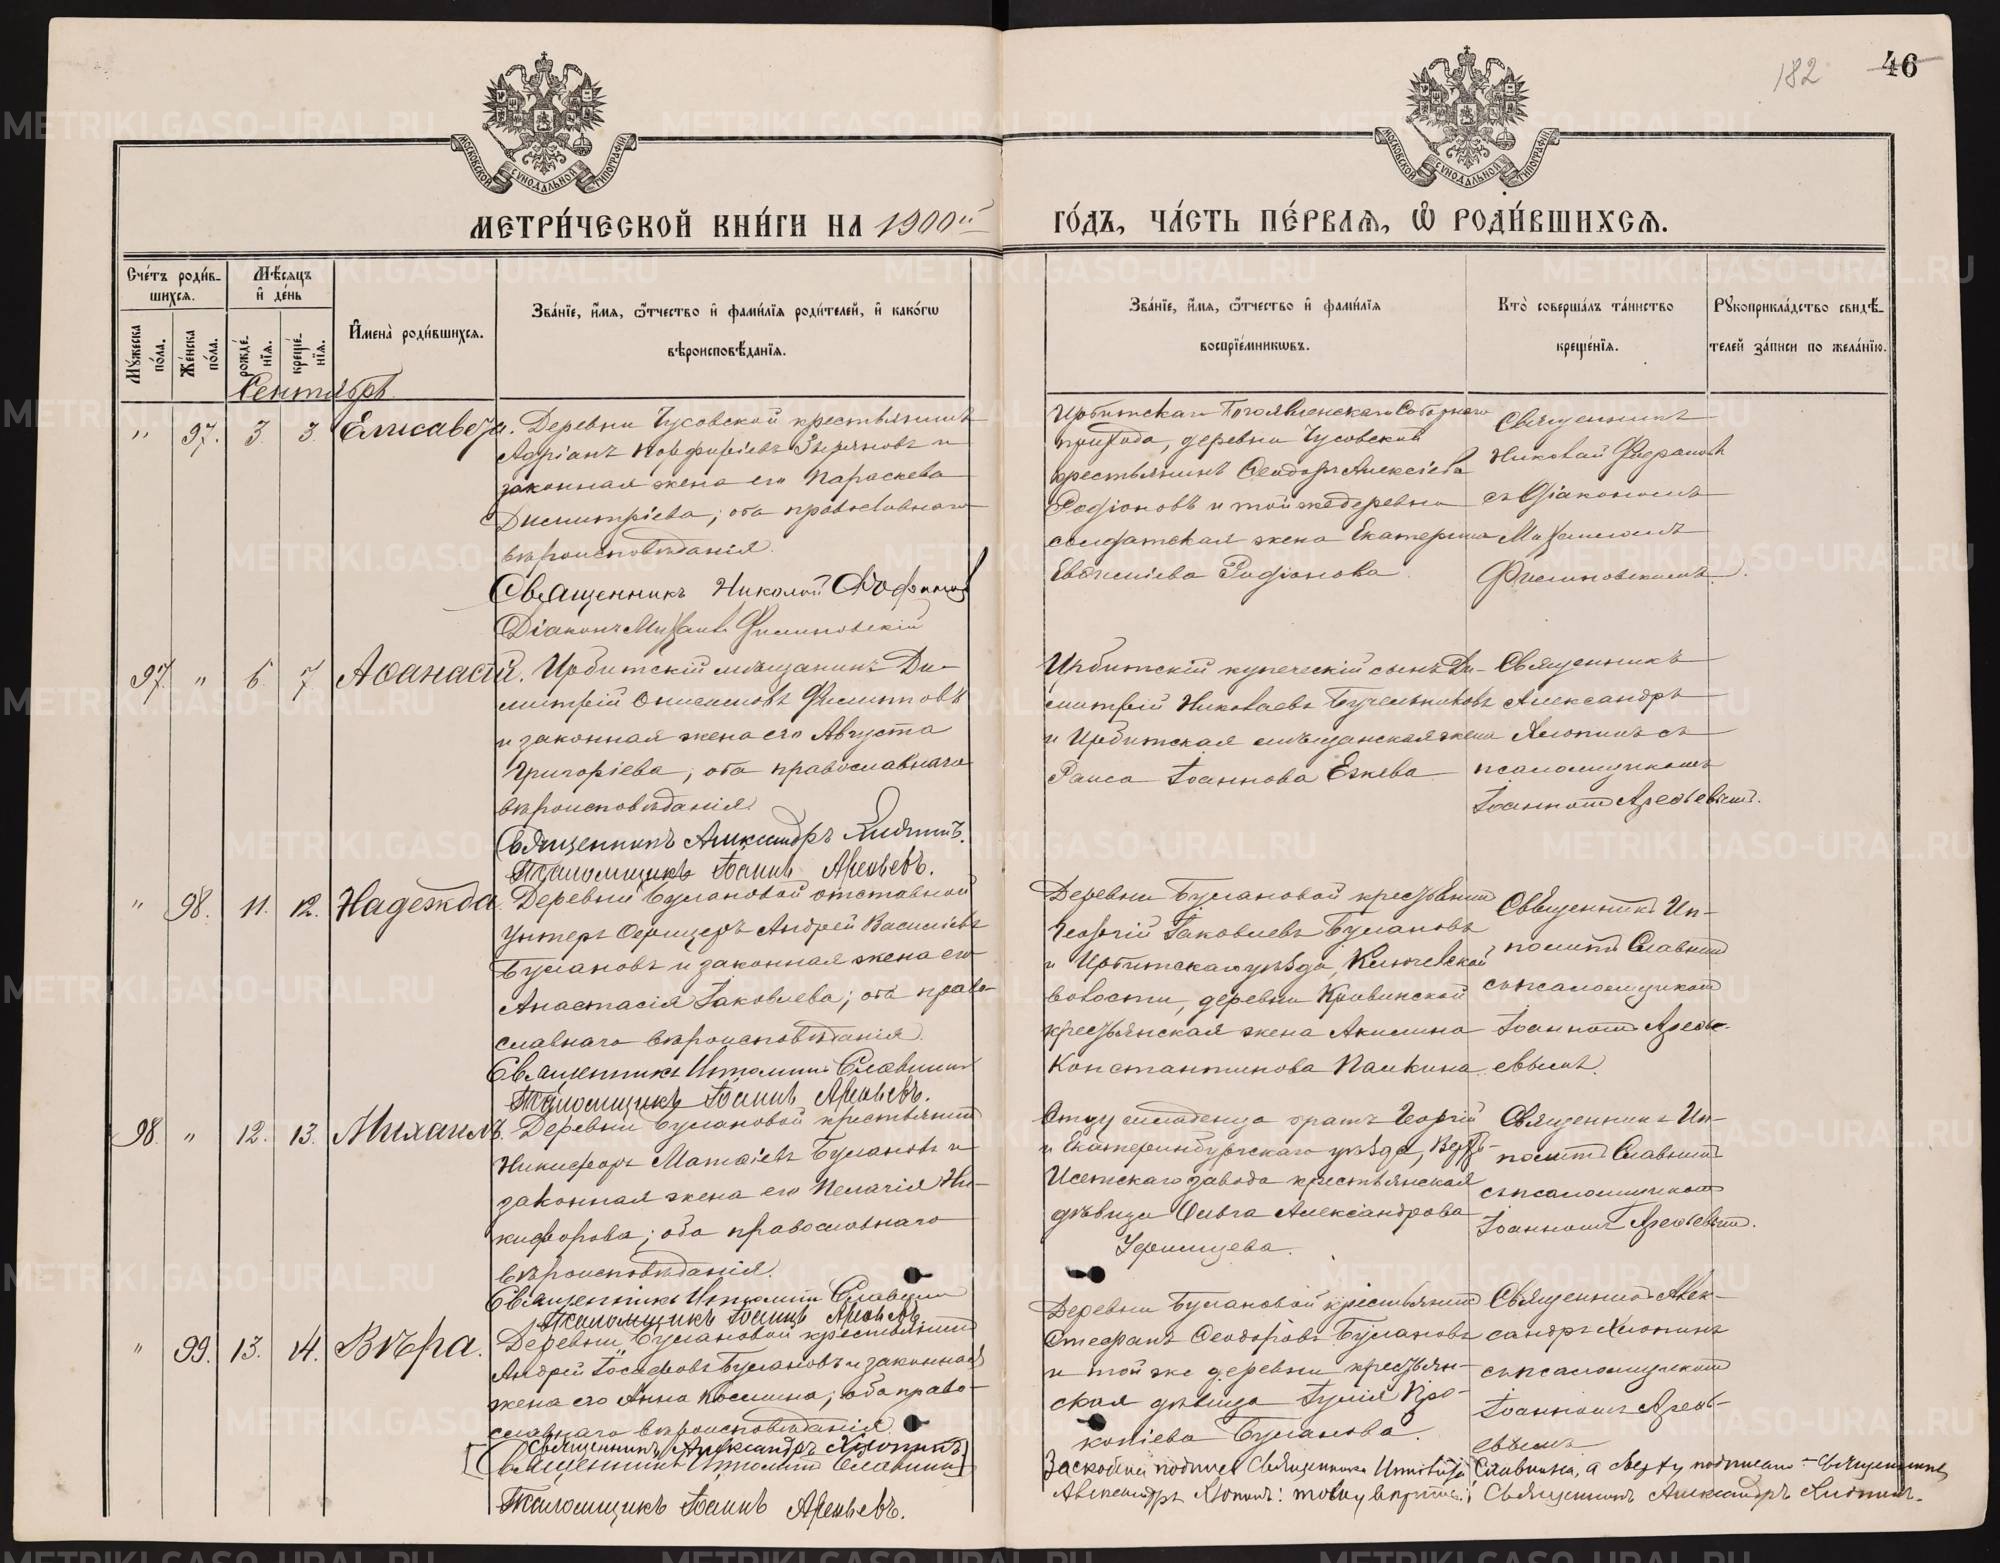 182
46
МОСКОВСКОЙ СѴНОДАЛЬНОЙ ТИПОГРАФІИ
МОСКОВСКОЙ СѴНОДАЛЬНОЙ ТИПОГРАФІИ
МЕТРИ́ЧЕСКОЙ КНИ́ГИ НА 1900й
ГО́ДЪ, ЧА́СТЬ ПЕ́РВАѦ, Ѡ҆ РОДИ́ВШИХСѦ.
Сче́тъ роди́в-
шихсѧ.
Мꙋ́жеска
по́ла.
Же́нска
по́ла.
Мѣ́сѧцъ
и҆ де́нь
рожде́-
нїѧ.
креще́-
нїѧ.
И҆мена̀ роди́вшихсѧ.
Зва́нїе, и҆́мѧ, ѻ҆́тчество и҆ фами́лїѧ роди́телей, и҆ како́гѡ
вѣроисповѣ́данїѧ.
Зва́нїе, и҆́мѧ, ѻ҆́тчество и҆ фами́лїѧ
воспрїе́мникѡвъ.
Кто̀ соверша́лъ та́инство
креще́нїѧ.
Рꙋкоприкла́дство свидѣ́-
телей за́писи по жела́нїю.
Сентябрь
" 97. 3. 3. Елисавета.
Деревни Чусовской крестьянинъ
Адріанъ Порфиріевъ Зыряновъ и
законная жена его Параскева
Димитріева; оба православнаго
вѣроисповѣданія.
Священникъ Николай
Діаконъ Михаилъ Филиновскій
Ирбитскаго Богоявленскаго Соборнаго
прихода, деревни Чусовской
крестьянинъ Ѳеодоръ Алексіевъ
Родіоновъ и той же деревни
солдатская жена Екатерина
Евѳиміева Родіонова.
Священникъ
Николай
съ Діакономъ
Михаиломъ
Филиновскимъ.
97. " 6. 7. Аѳанасій.
Ирбитскій мѣщанинъ Ди-
митрій Онисимовъ Филитовъ
и законная жена его Августа
Григоріева; оба православнаго
вѣроисповѣданія.
Священникъ Александръ Хлопинъ.
Псаломщикъ Іоаннъ Арефьевъ.
Ирбитскій купеческій сынъ Ди-
митрій Николаевъ
и Ирбитская мѣщанская жена
Раиса Іоаннова
Священникъ
Александръ
Хлопинъ съ
псаломщикомъ
Іоанномъ Арефьевымъ.
" 98. 11. 12. Надежда.
Деревни Булановой отставной
унтеръ офицеръ Андрей Василіевъ
Булановъ и законная жена его
Анастасія Іаковлева; оба право-
славнаго вѣроисповѣданія.
Священникъ Ипполитъ Славнинъ
Псаломщикъ Іоаннъ Арефьевъ.
Деревни Булановой крестьянинъ
Георгій Іаковлевъ Булановъ
и Ирбитскаго уѣзда, Ключевской
волости, деревни Кривинской
крестьянская жена Акилина
Константинова Палкина.
Священникъ Ип-
политъ Славнинъ
съ псаломщикомъ
Іоанномъ Арефь-
евымъ.
98. " 12. 13. Михаилъ.
Деревни Булановой крестьянинъ
Никифоръ Матѳіевъ Булановъ и
законная жена его Пелагія Ни-
кифорова; оба православнаго
вѣроисповѣданія.
Священникъ Ипполитъ Славнинъ
Псаломщикъ Іоаннъ Арефьевъ.
Отцу младенца братъ Георгій
и Екатеринбургскаго уѣзда, Верхъ-
Исетскаго завода крестьянская
дѣвица Ольга Александрова
Уфимцева.
Священникъ Ип-
политъ Славнинъ
съ псаломщикомъ
Іоанномъ Арефьевымъ.
" 99. 13. 14. Вѣра.
Деревни Булановой крестьянинъ
Андрей Іосифовъ Булановъ и законная
жена его Анна Космина; оба право-
славнаго вѣроисповѣданія.
Священникъ Александръ Хлопинъ
[Священникъ Ипполитъ Славнинъ]
Псаломщикъ Іоаннъ Арефьевъ.
Деревни Булановой крестьянинъ
Стефанъ Ѳеодоровъ Булановъ
и той же деревни крестьян-
ская дѣвица Іулія Про-
копіева Буланова.
Священникъ Алек-
сандръ Хлопинъ
съ псаломщикомъ
Іоанномъ Арефь-
евымъ.
Заскобени подписи Священника Ипполита Славнина, а сверху подписано - Священникъ
Александръ Хлопинъ: тому вѣрить. Священникъ Александръ Хлопинъ.
METRIKI.GASO-URAL.RU